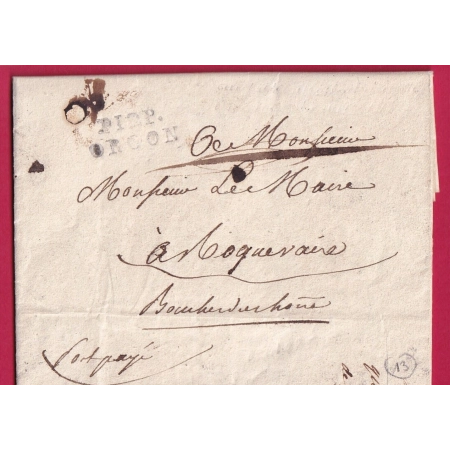 P12P.
ORGON
A Monsieur
Monsieur Le Maire
à Roquevaire
Bouches du rhône
Port payé
13